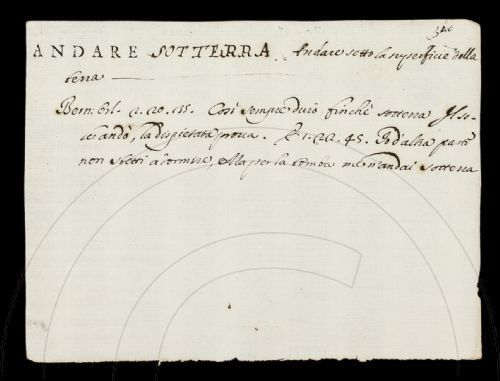 340
ANDARE SOTTERRA. Andare sotto la superficie della
terra
Bern: Orl. 2. 20. 25. Così sempre duro finchè sotterra Il so-
andò, la dispietata prova. E 1. 22. 45. Io d'altra parte
non stetti a dormire, Ma per la tomba me n'andai sotterra